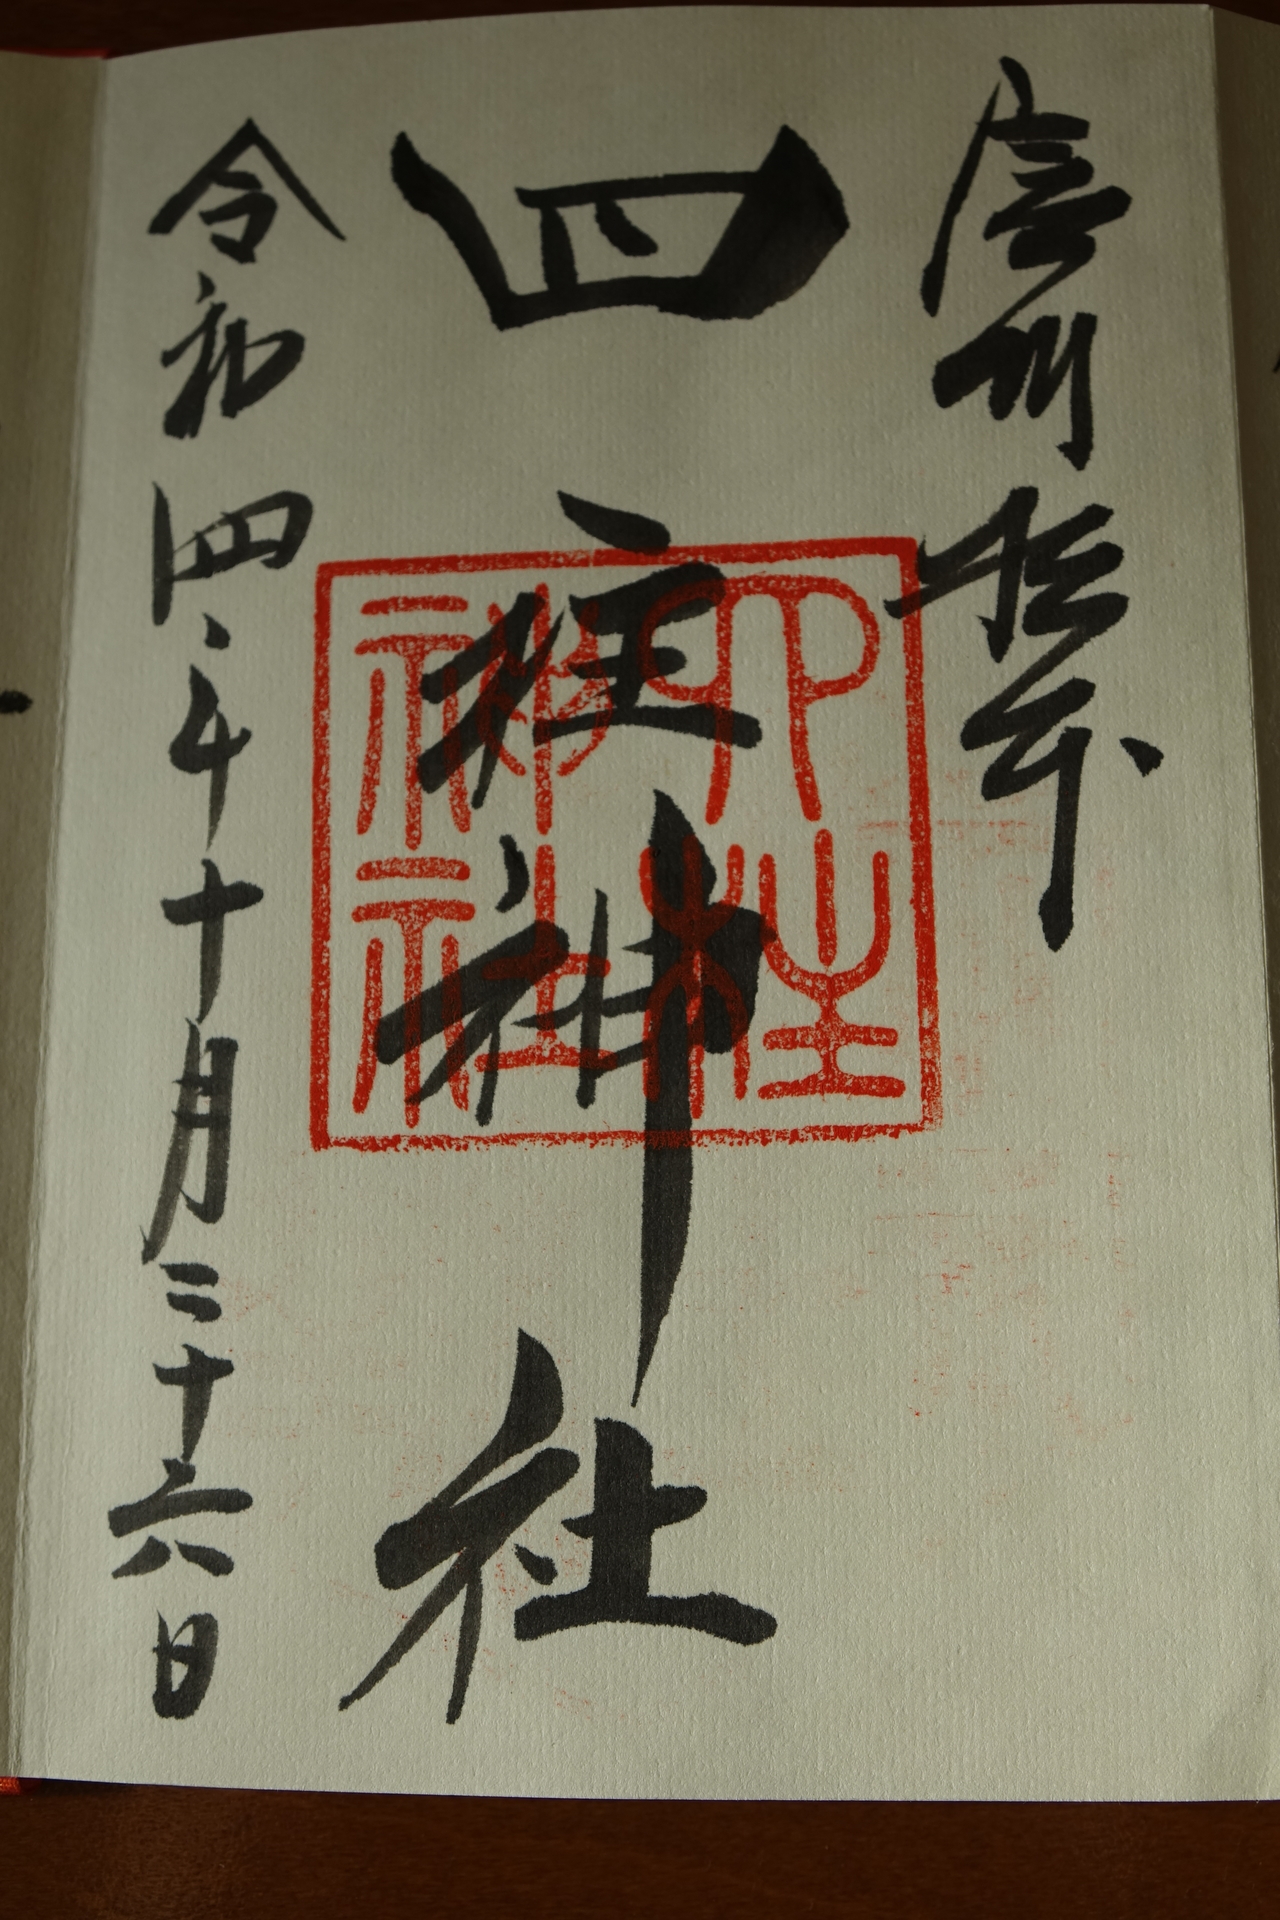 信州松本
四柱神社
四柱神社
令和四年十月二十六日